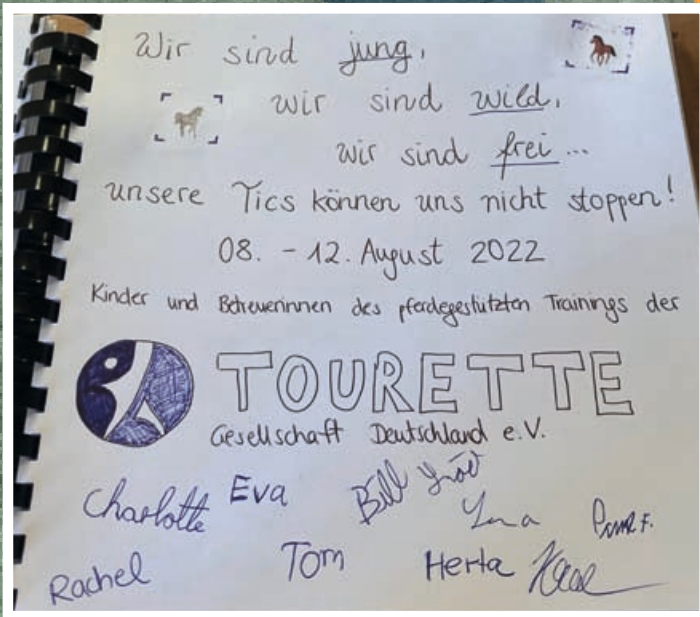 Wir sind jung,
wir sind wild,
wir sind frei...
unsere Tics können uns nicht stoppen!
08. - 12. August 2022
Kinder und Betreuerinnen des pferdegestützten Trainings der
TOURETTE
Gesellschaft Deutschland e.V.
Charlotte Eva Bill
Rachel Tom Herta